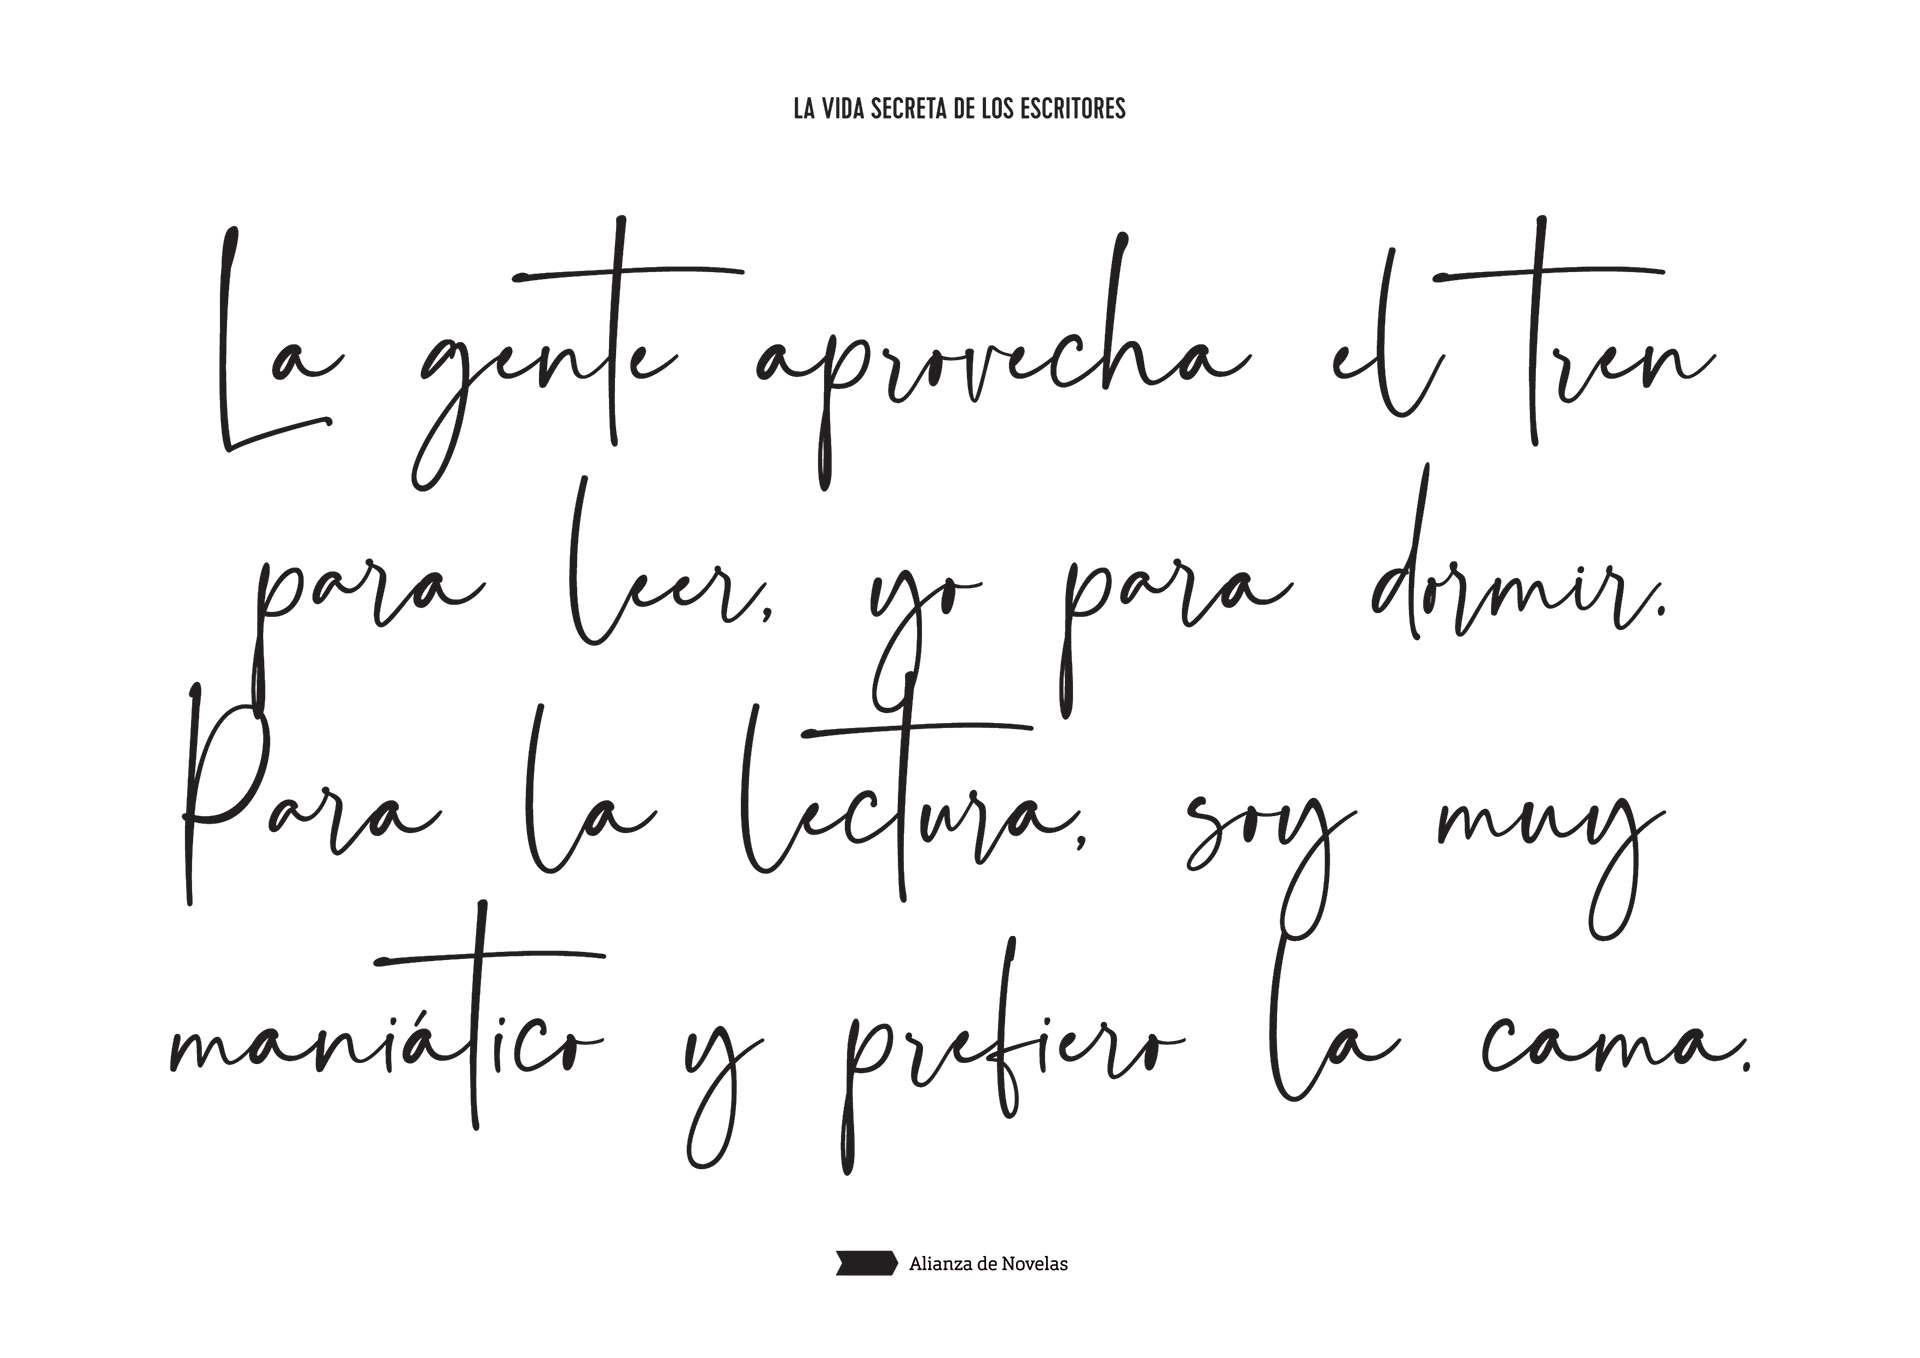 LA VIDA SECRETA DE LOS ESCRITORES
La gente aprovecha el tren
para leer, yo para dormir.
Para la lectura, soy muy
maniático y prefiero la cama.
Alianza de Novelas